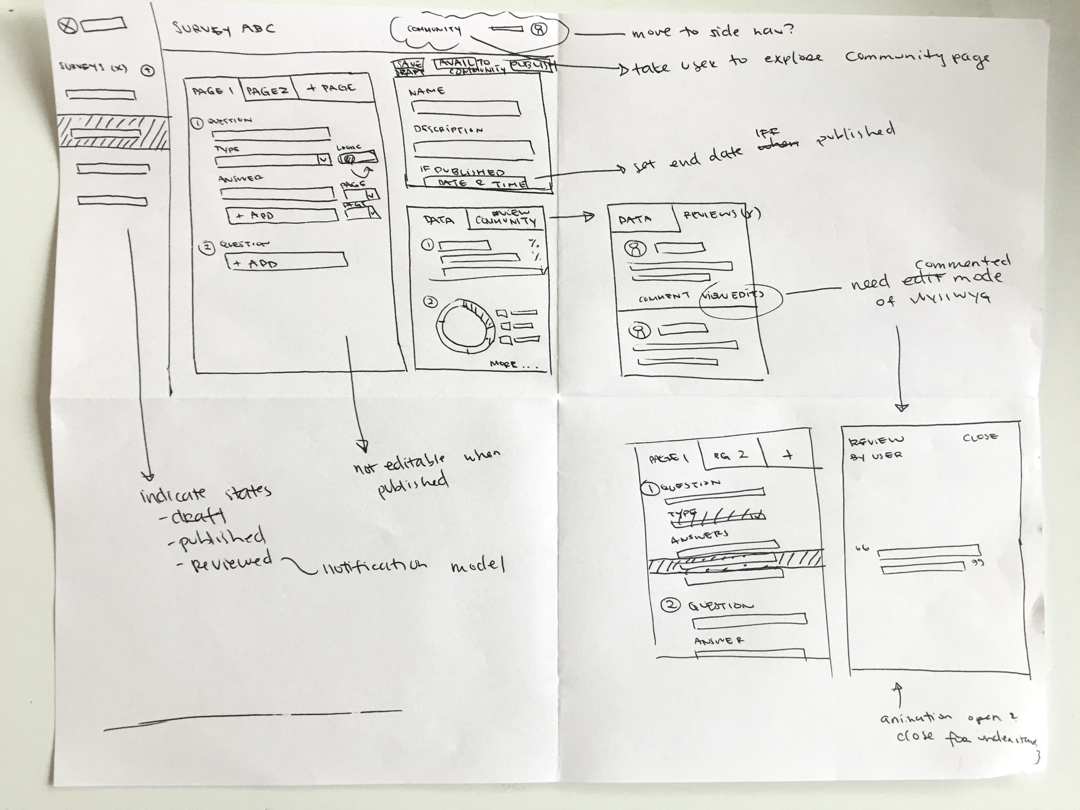 SURVEY ABC
COMMUNITY
move to side nav?
take user to explore community page
SURVEYS (X) +
SAVE DRAFT
AVAIL TO COMMUNITY
PUBLISH
PAGE 1
PAGE 2
+ PAGE
1 QUESTION
TYPE
LOGIC
ANSWER
PAGE
PAGE
+ ADD
2 QUESTION
+ ADD
NAME
DESCRIPTION
IF PUBLISHED
DATE & TIME
set end date when IFF published
DATA
REVIEW
COMMUNITY
1
%
%
2
MORE...
DATA
REVIEWS (X)
COMMENT
VIEW EDITS
need edit commented mode
of WYSIWYG
indicate states
- draft
- published
- reviewed
notification model
not editable when
published
PAGE 1
PG 2
+
1 QUESTION
TYPE
ANSWERS
2 QUESTION
ANSWER
REVIEW
BY USER
CLOSE
66
99
animation open &
close for